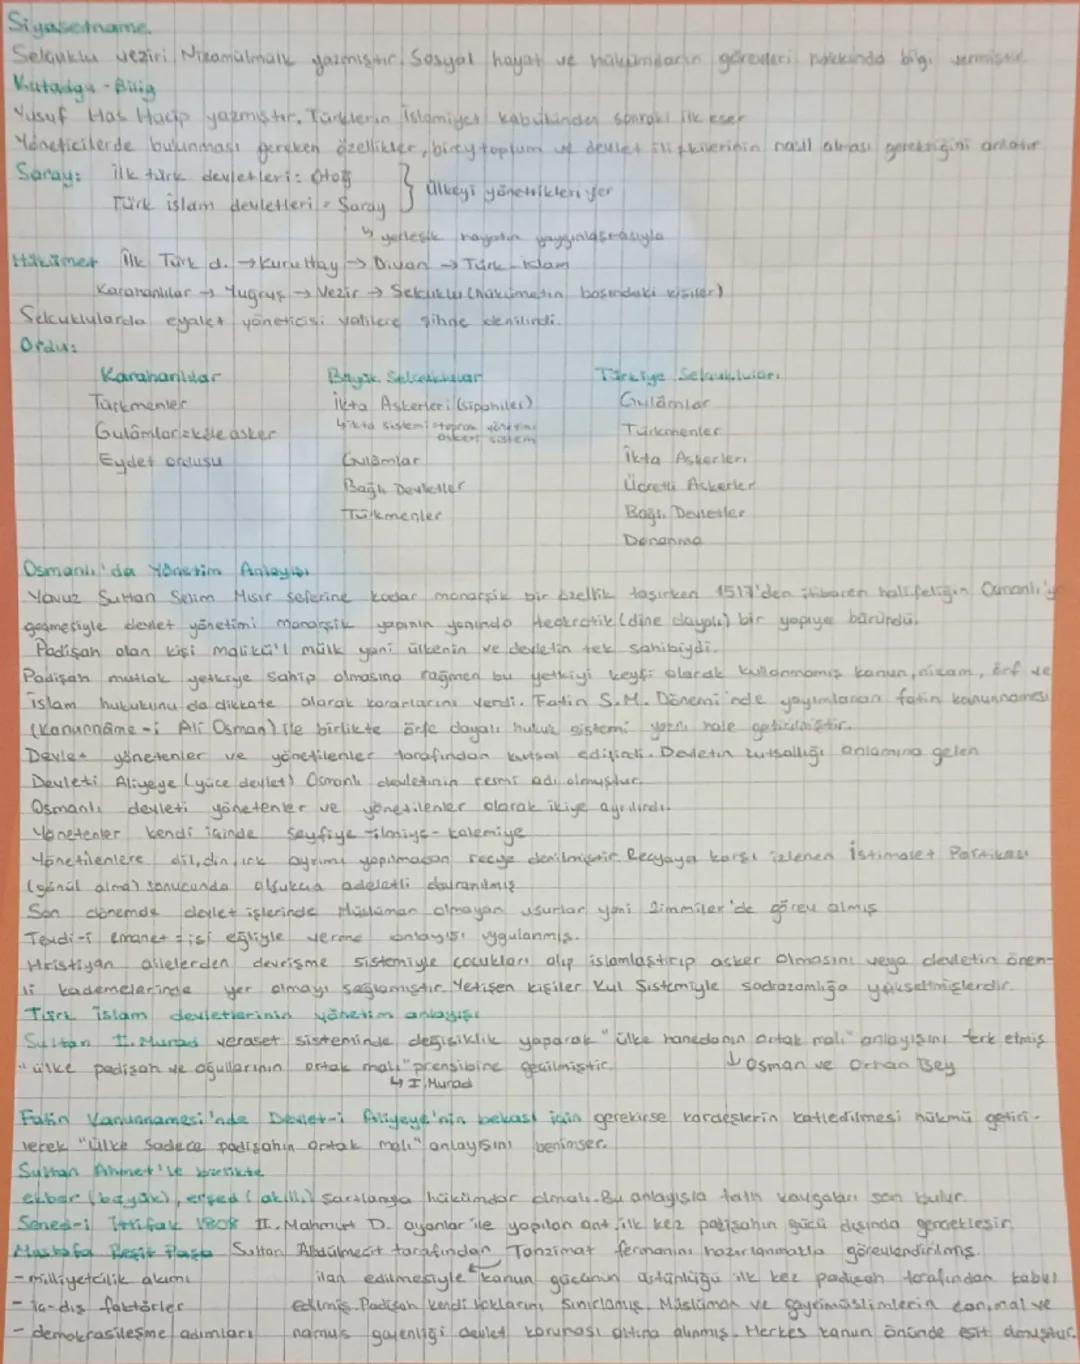 Siyasetname.
Selçuklu veziri Nizamülmülk yazmıştır. Sosyal hayat ve hükümdarın görevleri hakkında bilgi vermiştir.
Kutadgu-Bilig
Yusuf Has Hacip yazmıştır. Türklerin İslamiyet kabulünden sonraki ilk eser
Yöneticilerde bulunması gereken özellikler, birey toplum ve devlet ilişkilerinin nasıl olması gerektiğini anlatır
Saray: ilk türk devletleri: Otağ
Türk islam devletleri = Saray
} Ülkeyi yönettikleri yer
↳ yerleşik hayatın yaygınlaşmasıyla
Hükümet İlk Türk d. → Kurultay → Divan → Türk-islam
Karahanlılar → Yuğruş → Vezir → Selçuklu (hükümetin başındaki kişiler)
Selçuklularda eyalet yöneticisi valilere şihne denilirdi.
Ordu:
Karahanlılar
Türkmenler
Gulâmlar=köle asker
Eyalet ordusu
Büyük Selçuklular
İkta Askerleri (sipahiler)
↳ikta sistemi toprak yönetimi askeri sistem
Gulâmlar
Bağlı Devletler
Türkmenler
Türkiye Selçukluları
Gulâmlar
Türkmenler
İkta Askerleri
Ücretli Askerler
Bağlı Devletler
Donanma
Osmanlı'da Yönetim Anlayışı
Yavuz Sultan Selim Mısır seferine kadar monarşik bir özellik taşırken 1517'den itibaren halifeliğin Osmanlı'ya
geçmesiyle devlet yönetimi monarşik yapının yanında teokratik (dine dayalı) bir yapıya büründü.
Padişah olan kişi malikü'l mülk yani ülkenin ve devletin tek sahibiydi.
Padişah mutlak yetkiye sahip olmasına rağmen bu yetkiyi keyfi olarak kullanmamış kanun, nizam, örf ve
islam hukukunu da dikkate alarak kararlarını verdi. Fatih S.M. Dönemi'nde yayımlanan fatih kanunnamesi
(Kanunnâme-i Ali Osman) ile birlikte örfe dayalı hukuk sistemi yazılı hale getirilmiştir.
Devlet yönetenler ve yönetilenler tarafından kutsal edilirdi. Devletin kutsallığı anlamına gelen
Devleti Aliyeye (yüce devlet) Osmanlı devletinin resmi adı olmuştur.
Osmanlı devleti yönetenler ve yönetilenler olarak ikiye ayrılırdı.
Yönetenler kendi içinde seyfiye-ilmiye-kalemiye
Yönetilenlere dil, din, ırk ayrımı yapılmadan reaya denilmiştir. Reayaya karşı izlenen İstimalet Politikası
(gönül alma) sonucunda oldukça adaletli davranılmış
Son dönemde devlet işlerinde Müslüman olmayan usurlar yani Zimmiler'de görev almış
Tevdi-i emanet = işi ehliyle verme anlayışı uygulanmış.
Hristiyan ailelerden devrişme sistemiyle çocukları alıp islamlaştırıp asker olmasını veya devletin önem-
li kademelerinde yer almayı sağlamıştır. Yetişen kişiler Kul Sistemiyle sadrazamlığa yükselmişlerdir.
Türk islam devletlerinin yönetim anlayışı
Sultan I. Murad veraset sisteminde değişiklik yaparak "ülke hanedanın ortak malı" anlayışını terk etmiş
"ülke padişah ve oğullarının ortak malı" prensibine geçilmiştir. ↓ Osman ve Orhan Bey
↳ I. Murad
Fatih Kanunnamesi'nde Devlet-i Aliyeye'nin bekası için gerekirse kardeşlerin katledilmesi hükmü getiri-
lerek "ülke sadece padişahın ortak malı" anlayışını benimser.
Sultan Ahmet'le birlikte
ekber (büyük), erşed (akıllı) şartlarıyla hükümdar olmalı. Bu anlayışla taht kavgaları son bulur.
Sened-i İttifak 1808 II. Mahmut D. ayanlar ile yapılan ant, ilk kez padişahın gücü dışında gerçekleşir.
Mustafa Reşit Paşa Sultan Abdülmecit tarafından Tanzimat fermanını hazırlanmakla görevlendirilmiş.
-milliyetçilik akımı ilan edilmesiyle kanun gücünün üstünlüğü ilk kez padişah tarafından kabul
-iç-dış faktörler edilmiş. Padişah kendi haklarını sınırlamış. Müslüman ve gayrimüslimlerin can, mal ve
-demokrasileşme adımları namus güvenliği devlet koruması altına alınmış. Herkes kanun önünde eşit olmuştur.